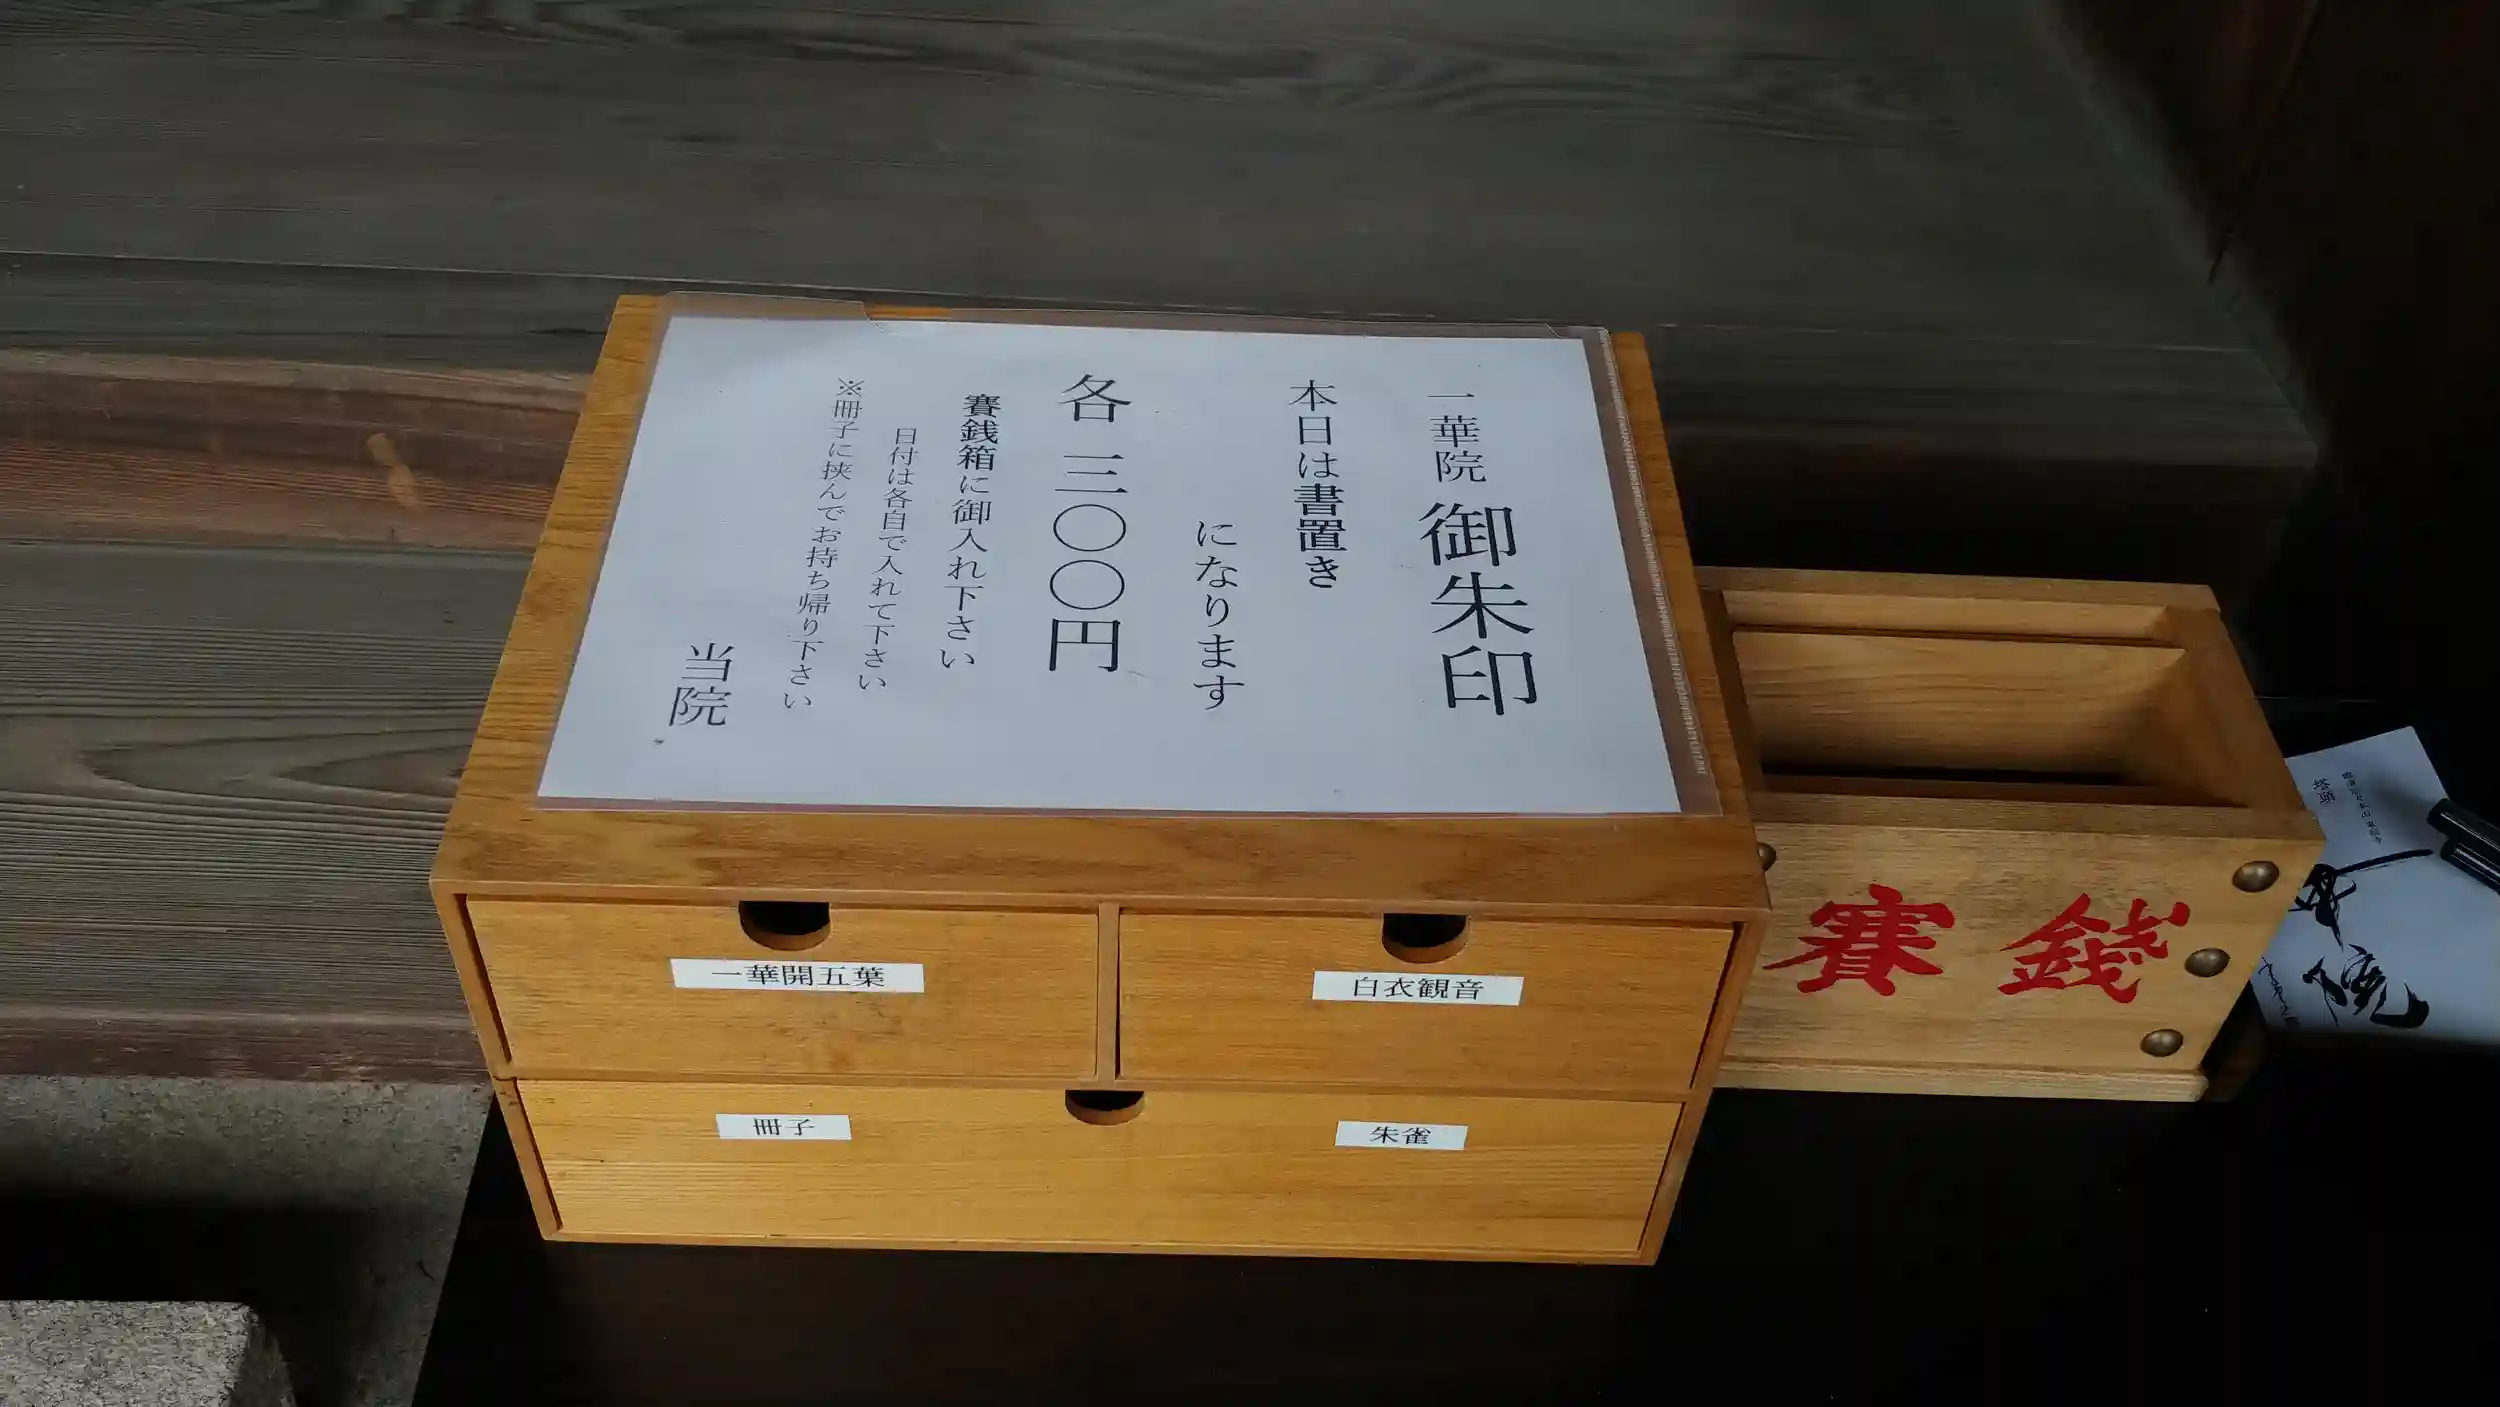 一華院 御朱印
本日は書置き
になります
各 三〇〇円
賽銭箱に御入れ下さい
日付は各自で入れて下さい
※冊子に挟んでお持ち帰り下さい
当院
一華開五葉
白衣観音
冊子
朱雀
賽銭
塔頭